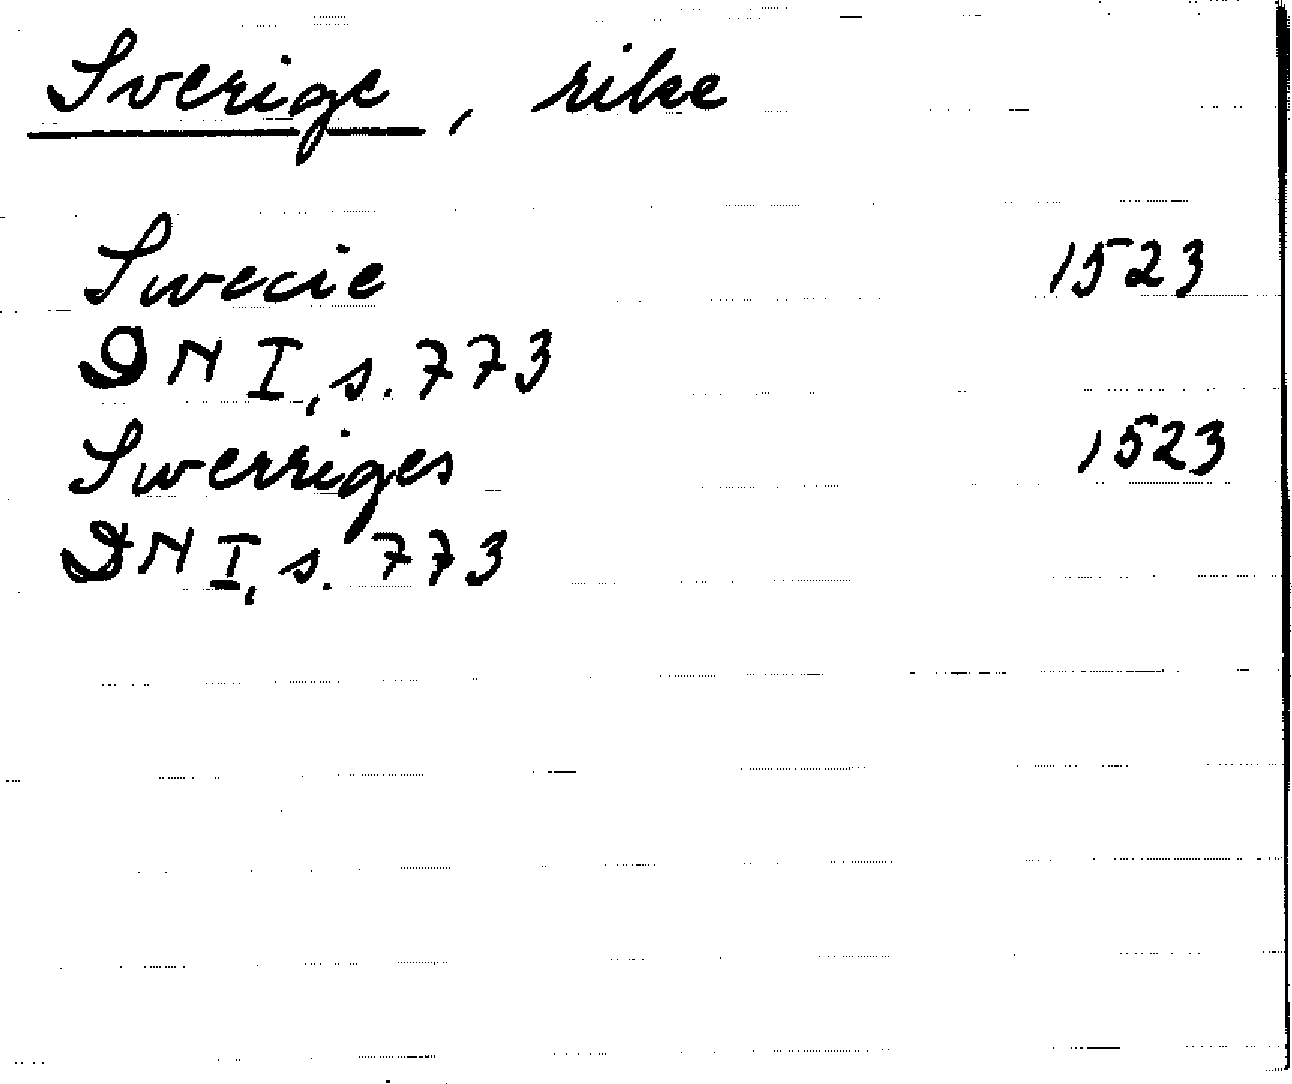 Sverige, rike
Swecie 1523
DN I, s. 773
Swerriges 1523
DN I, s. 773